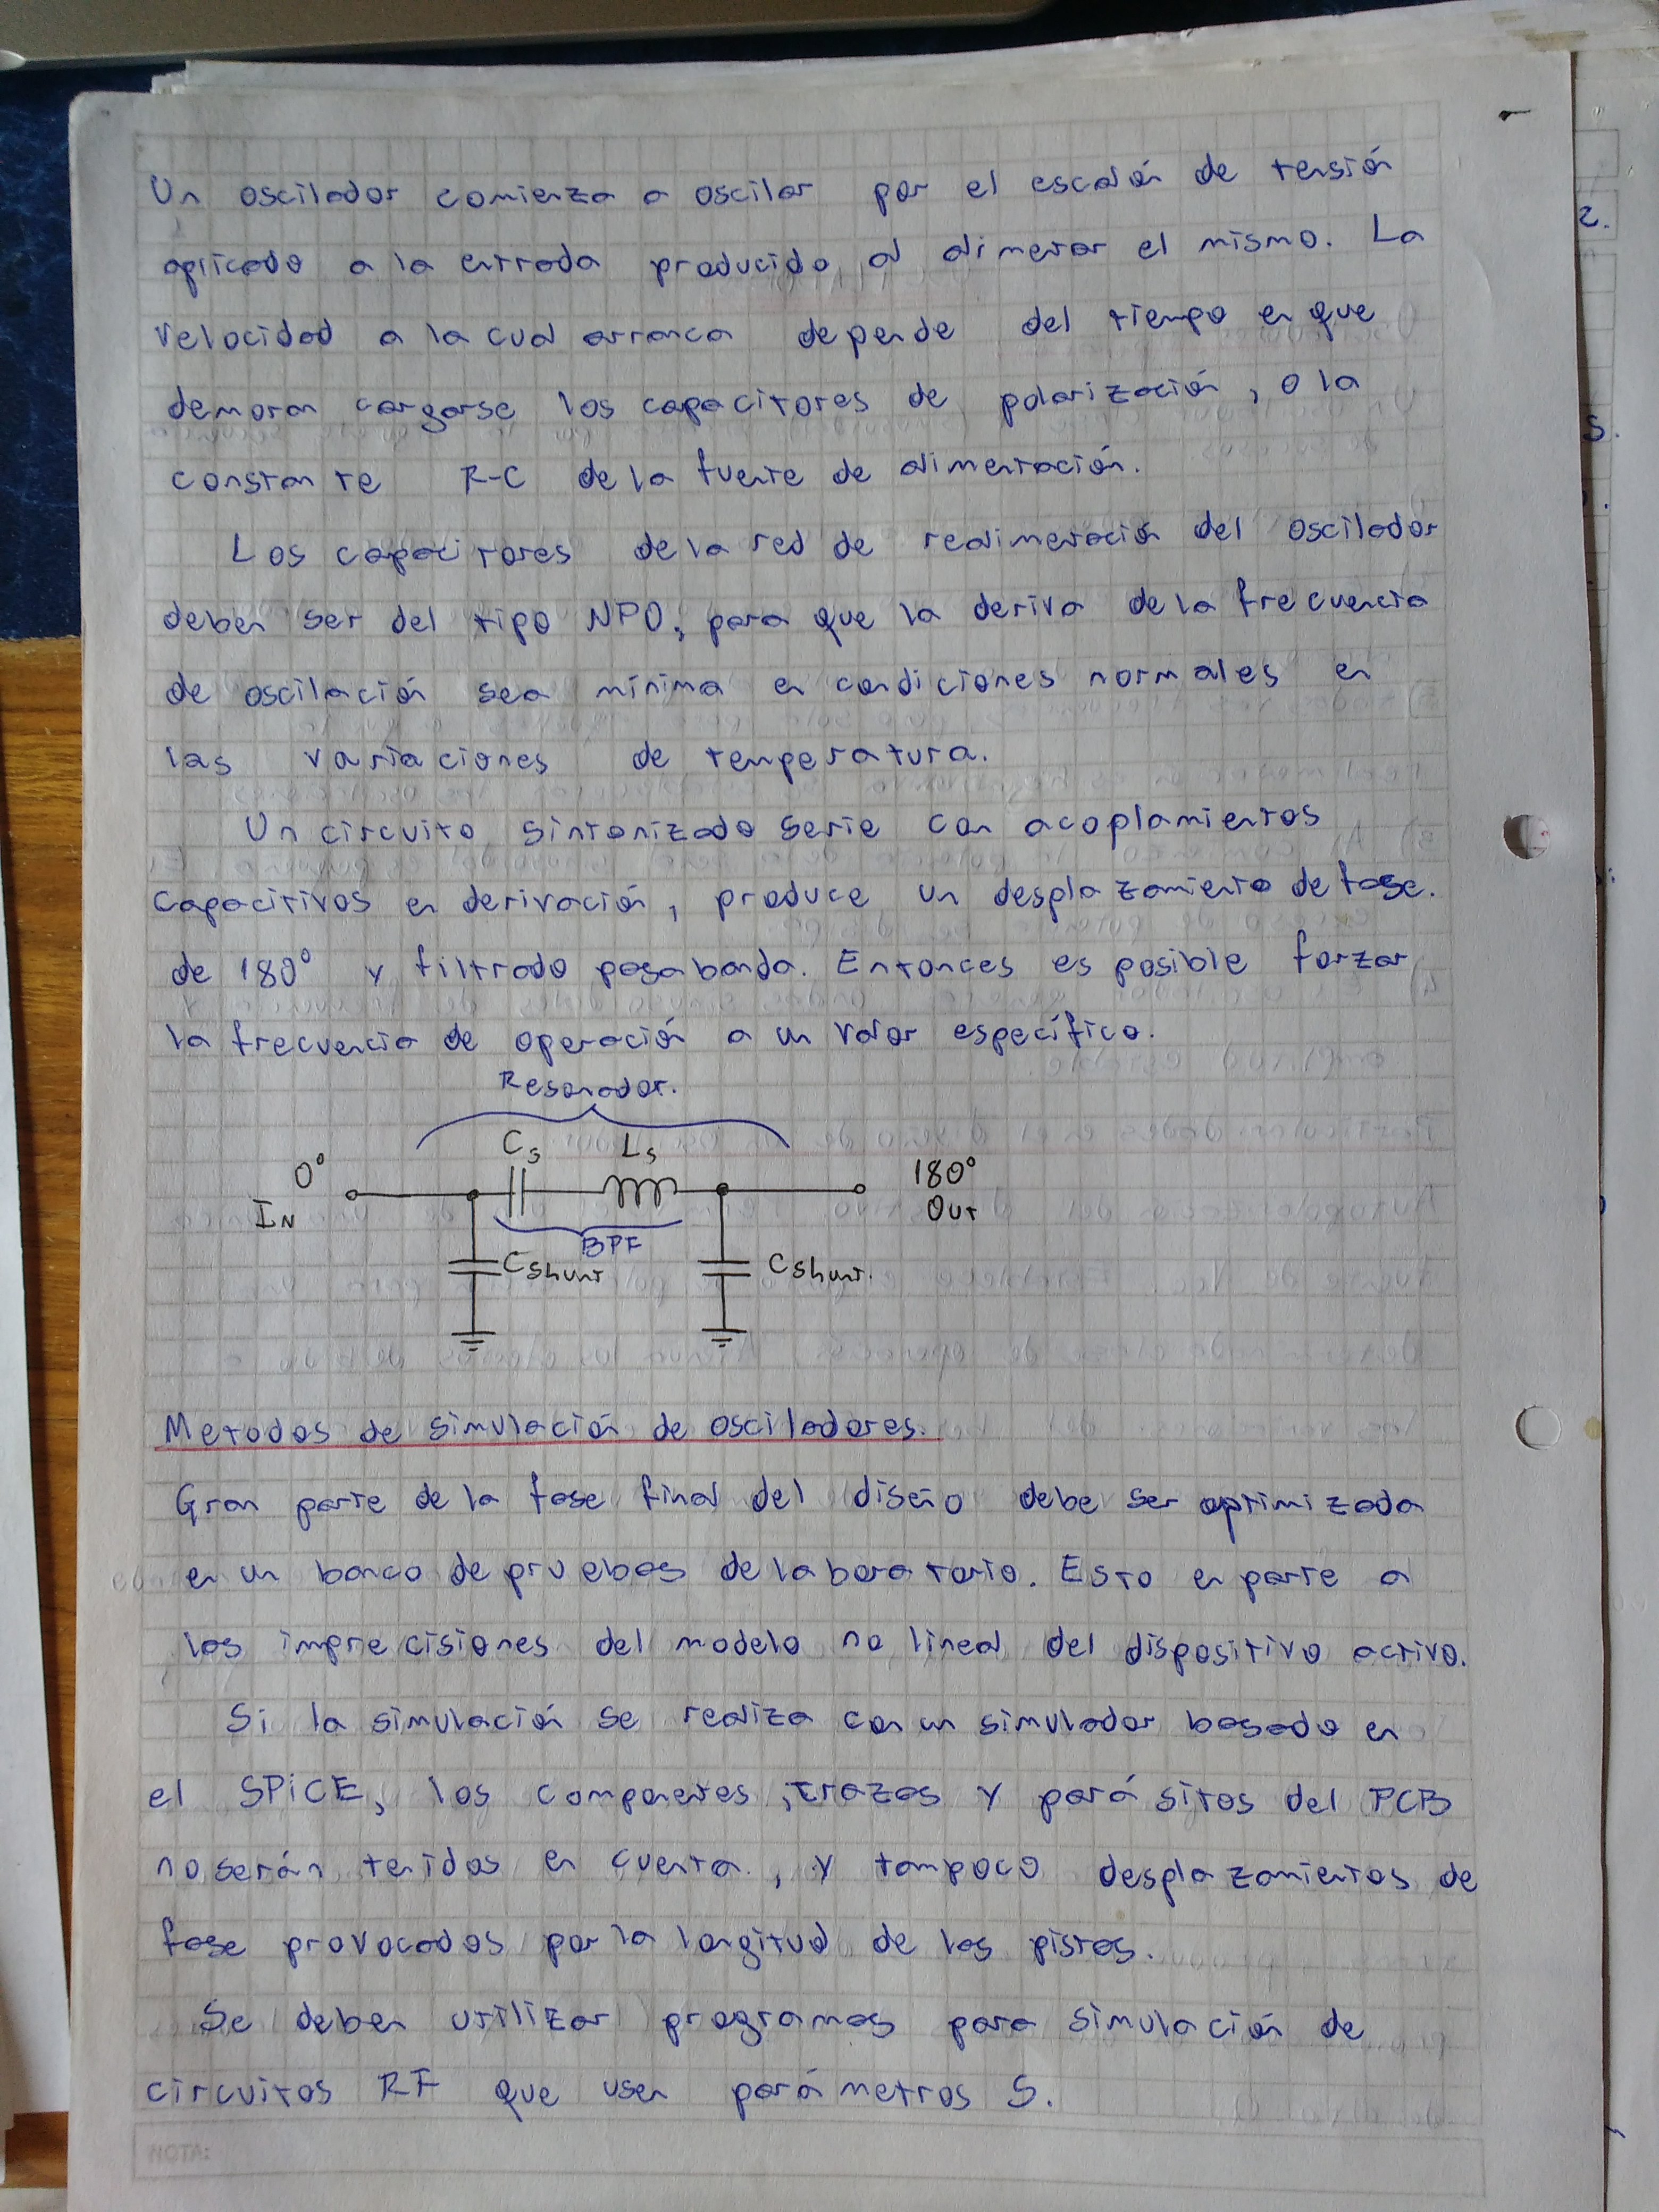 Un oscilador comienza a oscilar por el escalón de tensión
aplicado a la entrada producido al alimentar el mismo. La
velocidad a la cual arranca depende del tiempo en que
demoran cargarse los capacitores de polarización, o la
constante R-C de la fuente de alimentación.
Los capacitores de la red de realimentación del oscilador
deben ser del tipo NPO, para que la deriva de la frecuencia
de oscilación sea mínima en condiciones normales en
las variaciones de temperatura.
Un circuito sintonizado serie con acoplamientos
capacitivos en derivación, produce un desplazamiento de fase.
de 180° y filtrado pasabanda. Entonces es posible forzar
la frecuencia de operación a un valor específico.
Resonador.
Cs Ls
0° 180°
IN OUT
BPF
Cshunt Cshunt.
Metodos de simulación de osciladores.
Gran parte de la fase final del diseño debe ser optimizada
en un banco de pruebas de laboratorio. Esto en parte a
las imprecisiones del modelo no lineal del dispositivo activo.
Si la simulación se realiza con un simulador basado en
el SPICE, los componentes, trazas y parásitos del PCB
no serán tenidos en cuenta, y tampoco desplazamientos de
fase provocados por la longitud de las pistas.
Se deben utilizar programas para simulación de
circuitos RF que usen parámetros S.
NOTA: